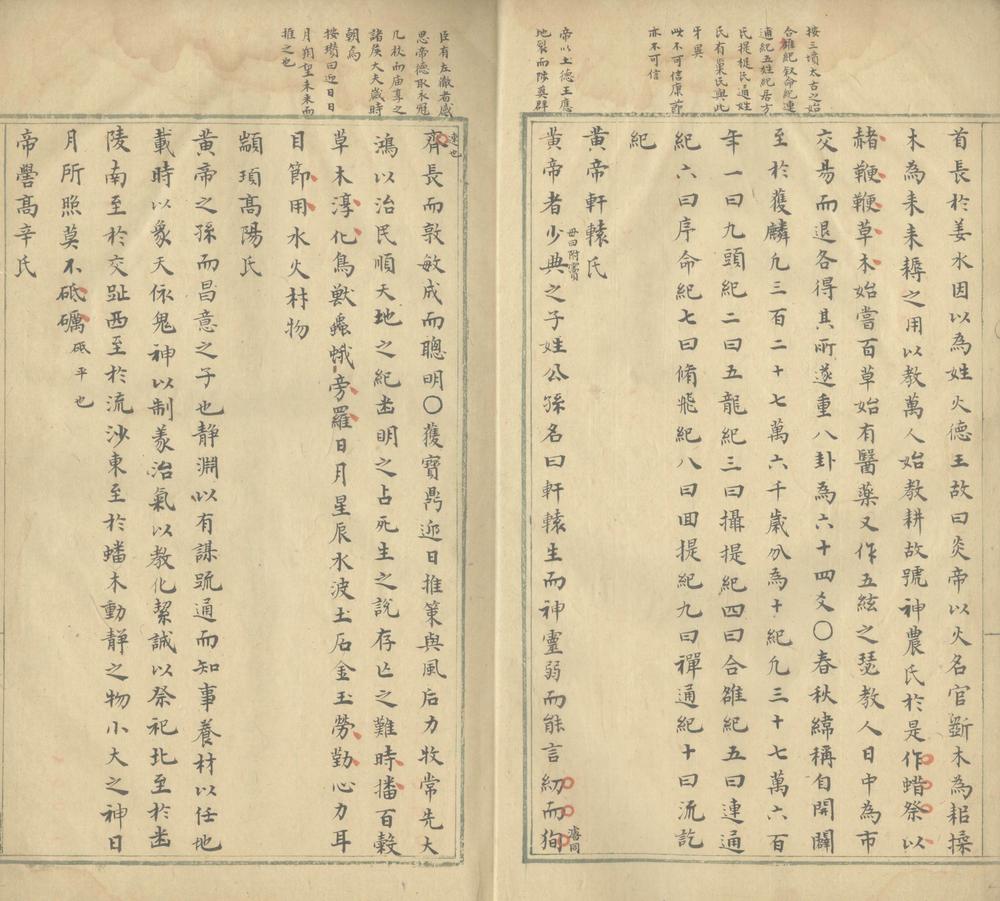 按三墳太古之始
合雒紀敘命紀連
通紀五姓紀居方
氏提挺氏通姓
氏有巢氏與此
牙異
此不可信康節
亦不可信
帝以土德王應
地裂而陟葬群
首長於姜水因以為姓火德王故曰炎帝以火名官斲木為耜揉
木為耒耒耨之用以教萬人始教耕故號神農氏於是作蜡祭以
赭鞭鞭草木始嘗百草始有醫藥又作五絃之瑟教人日中為市
交易而退各得其所遂重八卦為六十四爻〇春秋緯稱自開闢
至於獲麟凡三百二十七萬六千歲分為十紀凡三十七萬六百
年一曰九頭紀二曰五龍紀三曰攝提紀四曰合雒紀五曰連通
紀六曰序命紀七曰脩飛紀八曰回提紀九曰禪通紀十曰流訖
紀
黃帝軒轅氏
毌曰附寶
黃帝者少典之子姓公孫名曰軒轅生而神靈弱而能言幼而狥
濬同
臣有左澈者感
思帝德取衣冠
几杖而庙享之
諸侯大夫歲時
朝焉
按瓚曰迎日日
月朔望未來而
推之也
速也
齊長而敦敏成而聰明〇獲寶鼎迎日推筴與風后力牧常先大
鴻以治民順天地之紀幽明之占死生之說存亡之難時播百穀
草木淳化鳥獸蟲蛾旁羅日月星辰水波土石金玉勞勤心力耳
目節用水火材物
顓頊高陽氏
黃帝之孫而昌意之子也靜淵以有謀疏通而知事養材以任地
載時以象天依鬼神以制義治氣以教化絜誠以祭祀北至於幽
陵南至於交趾西至於流沙東至於蟠木動靜之物小大之神日
月所照莫不砥礪砥平也
帝嚳高辛氏